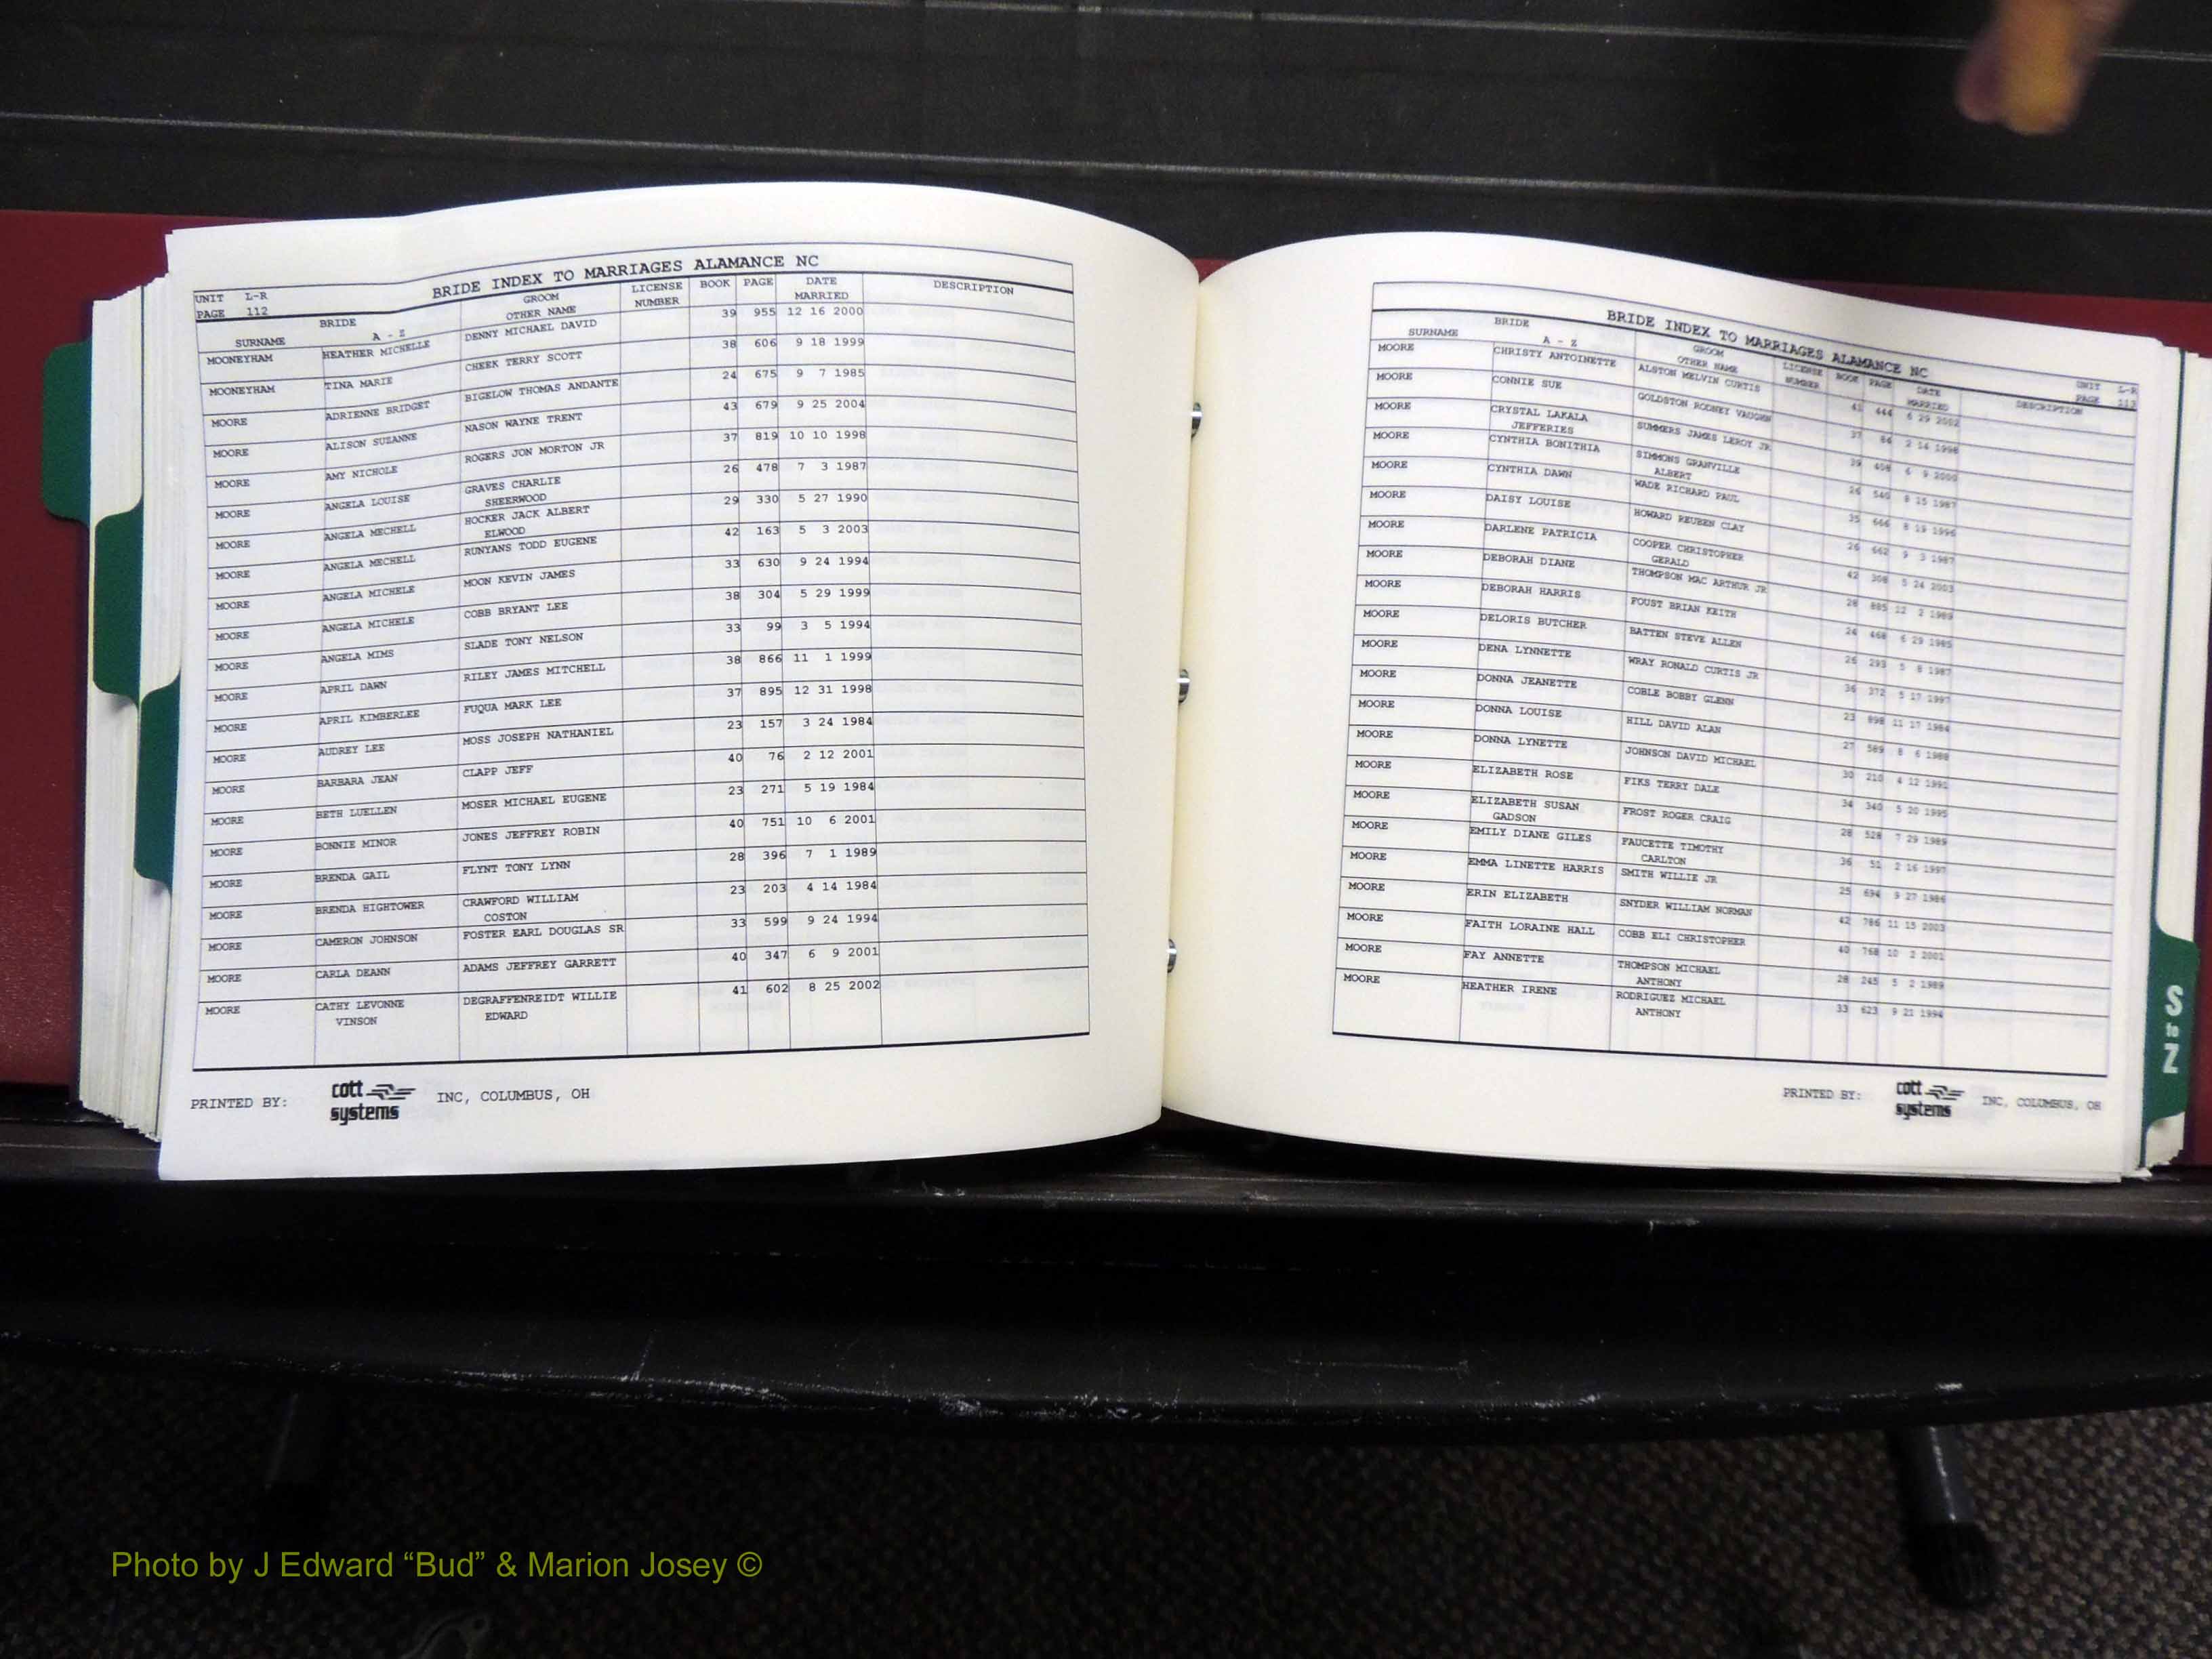 BRIDE INDEX TO MARRIAGES ALAMANCE NC
UNIT L-R
PAGE 112
BRIDE GROOM LICENSE BOOK PAGE DATE DESCRIPTION
SURNAME A - Z OTHER NAME NUMBER MARRIED
MOONEYHAM HEATHER MICHELLE DENNY MICHAEL DAVID 39 955 12 16 2000
MOONEYHAM TINA MARIE CHEEK TERRY SCOTT 38 606 9 18 1999
MOORE ADRIENNE BRIDGET BIGELOW THOMAS ANDANTE 24 675 9 7 1985
MOORE ALISON SUZANNE NASON WAYNE TRENT 43 679 9 25 2004
MOORE AMY NICHOLE ROGERS JON MORTON JR 37 819 10 10 1998
MOORE ANGELA LOUISE GRAVES CHARLIE 26 478 7 3 1987
SHEERWOOD
MOORE ANGELA MECHELL HOCKER JACK ALBERT 29 330 5 27 1990
ELWOOD
MOORE ANGELA MECHELL RUNYANS TODD EUGENE 42 163 5 3 2003
MOORE ANGELA MICHELE MOON KEVIN JAMES 33 630 9 24 1994
MOORE ANGELA MICHELE COBB BRYANT LEE 38 304 5 29 1999
MOORE ANGELA MIMS SLADE TONY NELSON 33 99 3 5 1994
MOORE APRIL DAWN RILEY JAMES MITCHELL 38 866 11 1 1999
MOORE APRIL KIMBERLEE FUQUA MARK LEE 37 895 12 31 1998
MOORE AUDREY LEE MOSS JOSEPH NATHANIEL 23 157 3 24 1984
MOORE BARBARA JEAN CLAPP JEFF 40 76 2 12 2001
MOORE BETH LUELLEN MOSER MICHAEL EUGENE 23 271 5 19 1984
MOORE BONNIE MINOR JONES JEFFREY ROBIN 40 751 10 6 2001
MOORE BRENDA GAIL FLYNT TONY LYNN 28 396 7 1 1989
MOORE BRENDA HIGHTOWER CRAWFORD WILLIAM 23 203 4 14 1984
COSTON
MOORE CAMERON JOHNSON FOSTER EARL DOUGLAS SR 33 599 9 24 1994
MOORE CARLA DEANN ADAMS JEFFREY GARRETT 40 347 6 9 2001
MOORE CATHY LEVONNE DEGRAFFENREIDT WILLIE 41 602 8 25 2002
VINSON EDWARD
PRINTED BY: cott systems INC, COLUMBUS, OH
BRIDE INDEX TO MARRIAGES ALAMANCE NC
UNIT L-R
PAGE 113
BRIDE GROOM LICENSE BOOK PAGE DATE DESCRIPTION
SURNAME A - Z OTHER NAME NUMBER MARRIED
MOORE CHRISTY ANTOINETTE ALSTON MELVIN CURTIS 41 444 6 29 2002
MOORE CONNIE SUE GOLDSTON RODNEY VAUGHN 37 84 2 14 1998
MOORE CRYSTAL LAKALA SUMMERS JAMES LEROY JR 39 6 9 2000
JEFFERIES
MOORE CYNTHIA BONITHIA SIMMONS GRANVILLE 26 540 8 15 1987
ALBERT
MOORE CYNTHIA DAWN WADE RICHARD PAUL 35 666 8 19 1996
MOORE DAISY LOUISE HOWARD REUBEN CLAY 26 662 9 3 1987
MOORE DARLENE PATRICIA COOPER CHRISTOPHER 42 308 5 24 2003
GERALD
MOORE DEBORAH DIANE THOMPSON MAC ARTHUR JR 28 885 12 2 1989
MOORE DEBORAH HARRIS FOUST BRIAN KEITH 24 468 6 29 1985
MOORE DELORIS BUTCHER BATTEN STEVE ALLEN 26 293 5 8 1987
MOORE DENA LYNNETTE WRAY RONALD CURTIS JR 36 372 5 17 1997
MOORE DONNA JEANETTE COBLE BOBBY GLENN 23 898 11 17 1984
MOORE DONNA LOUISE HILL DAVID ALAN 27 589 8 6 1988
MOORE DONNA LYNETTE JOHNSON DAVID MICHAEL 30 210 4 12
MOORE ELIZABETH ROSE FIKS TERRY DALE 34 340 5 20 1995
MOORE ELIZABETH SUSAN FROST ROGER CRAIG 28 528 7 29 1989
GADSON
MOORE EMILY DIANE GILES FAUCETTE TIMOTHY 36 51 2 16 1997
CARLTON
MOORE EMMA LINETTE HARRIS SMITH WILLIE JR 25 694 9 27 1986
MOORE ERIN ELIZABETH SNYDER WILLIAM NORMAN 42 786 11 15 2003
MOORE FAITH LORAINE HALL COBB ELI CHRISTOPHER 40 768 10 2 2001
MOORE FAY ANNETTE THOMPSON MICHAEL 28 245 5 2 1989
ANTHONY
MOORE HEATHER IRENE RODRIGUEZ MICHAEL 33 623 9 21 1994
ANTHONY
PRINTED BY: cott systems INC, COLUMBUS, OH
S to Z
Photo by J Edward “Bud” & Marion Josey ©